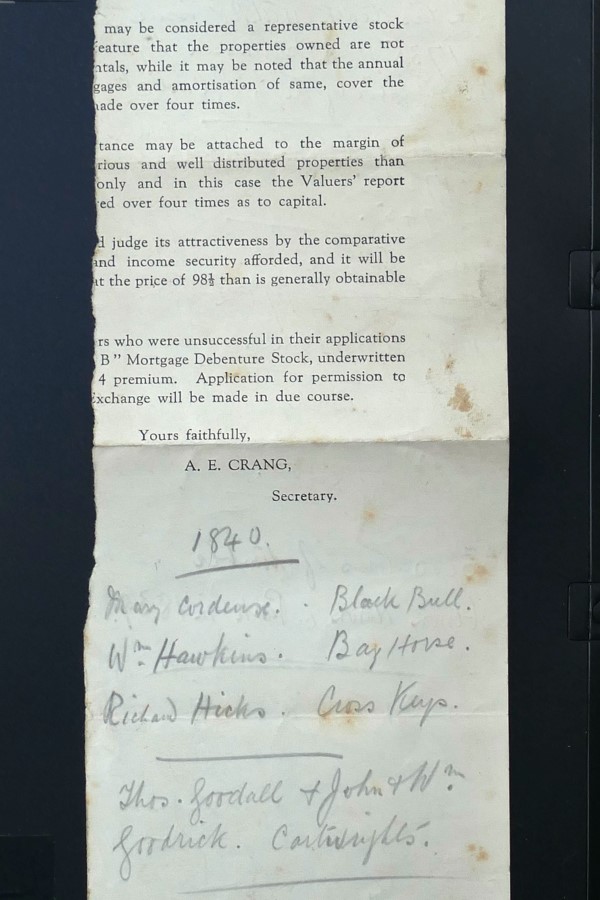 may be considered a representative stock
eature that the properties owned are not
ntals, while it may be noted that the annual
gages and amortisation of same, cover the
ade over four times.
tance may be attached to the margin of
rious and well distributed properties than
only and in this case the Valuers' report
ed over four times as to capital.
d judge its attractiveness by the comparative
and income security afforded, and it will be
at the price of 98½ than is generally obtainable
rs who were unsuccessful in their applications
B" Mortgage Debenture Stock, underwritten
4 premium. Application for permission to
Exchange will be made in due course.
Yours faithfully,
A. E. CRANG,
Secretary.
1840.
Mary . Black Bull.
Wm Hawkins. Bay Horse.
Richard Hicks. Cross Keys.
Thos. Goodall & John & Wm
Goodrick. Cartwrights.